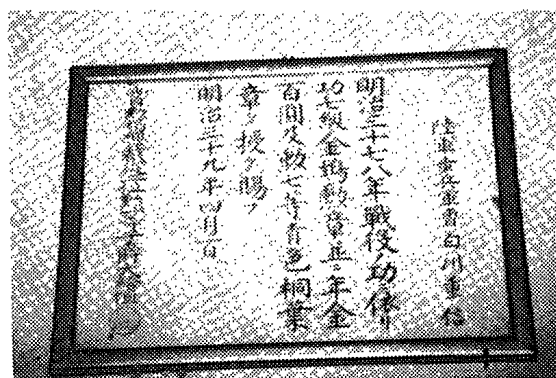 陸軍歩兵軍曹白川重信
明治三十七八年戦役ノ功ニ依リ
功七級金鵄勲章並ニ年金
百圓及勲七等青色桐葉
章ヲ授ケ賜フ
明治三十九年四月一日